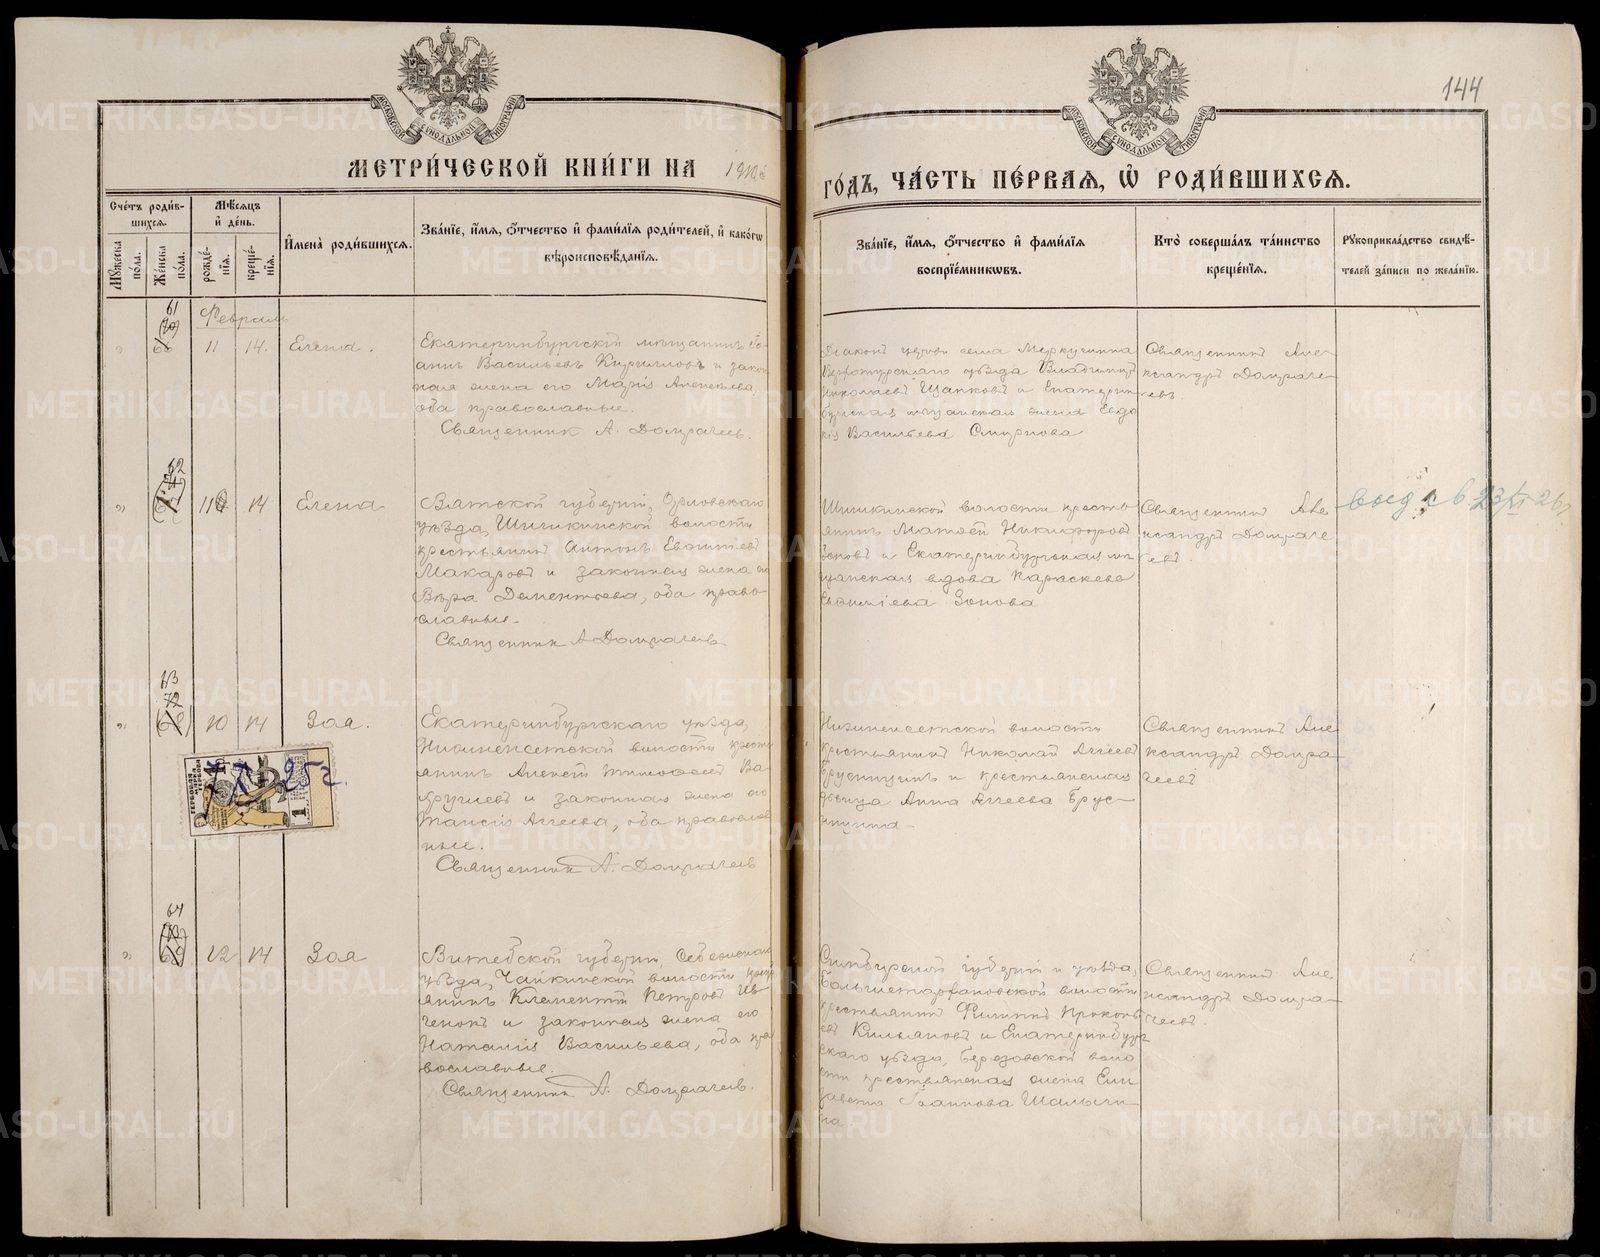 144
МОСКОВСКОЙ СѴНОДАЛЬНОЙ ТИПОГРАФІИ
МОСКОВСКОЙ СѴНОДАЛЬНОЙ ТИПОГРАФІИ
МЕТРИ́ЧЕСКОЙ КНИ́ГИ НА
ГО́ДЪ, ЧА́СТЬ ПЕ́РВАЯ, Ѽ РОДИ́ВШИХСЯ.
Сче́тъ роди́в-
шихся.
Мꙋжеска по́ла.
Же́нска по́ла.
Мѣсяцъ
и̂ де́нь.
рожде́-
нія.
креще́-
нія.
И̂мена̀ роди́вшихся.
Зва́ніе, и́мя, ѻ́тчество и̂ фами́лія роди́телей, и̂ како́гѡ
вѣроисповѣ́данія.
Зва́ніе, и́мя, ѻ́тчество и̂ фами́лія
воспріе́мникѡвъ.
Кто̀ соверша́лъ та́инство
креще́нія.
Рꙋкоприкла́дство свидѣ́-
телей за́писи по жела́нію.
Февраль
61
11 14. Елена.
Екатеринбургскій мѣщанинъ Іо-
аннъ Васильевъ Кирилловъ и закон
ная жена его Марія Алексѣева,
оба православные.
Священник А. Домрачеев.
Діаконъ церкви села Меркушина
Верхотурскаго уѣзда Владиміръ
Николаевъ Щапковъ и Екатерин
бургская мѣщанская жена Евдо
кія Васильева Смирнова
Священникъ Але-
ксандръ Домраче-
евъ.
62
11 14 Елена
Вятской губерніи, Орловскаго
уѣзда, Шишкинской волости
крестьянинъ Антонъ Евфиміевъ
Макаровъ и законная жена его
Вѣра Дементьева, оба право-
славные.
Священник А. Домрачеев
Шишкинской волости кресть
янинъ Матѳей Никифоровъ
и Екатеринбургская мѣ
щанская вдова Параскева
Евфиміева Зонова
Священникъ Але
ксандръ Домраче
евъ.
23/XI 26
63
10 14 Зоя.
Екатеринбургскаго уѣзда,
Нижнеисетской волости кресть
янинъ Алексѣй Тимофеевъ Ва
и законная жена его
Таисія Агѳеева, оба православ
ные.
Священник А. Домрачеев
Нижнеисетской волости
крестьянинъ Николай Агѳеевъ
Бруснинъ и крестьянская
дѣвица Анна Агѳеева Брус-
Священникъ Але
ксандръ Домра-
чеевъ
ГЕРБОВАЯ МАРКА
1
25 г.
64
12 14 Зоя
Витебской губерніи, Себежскаго
уѣзда, Чайкинской волости крест
янинъ Климентій Петровъ Ив
ченокъ и законная жена его
Наталія Васильева, оба пра
вославные.
Священник А. Домрачеев.
Симбирской губерніи и уѣзда,
Большетархановской волости
крестьянинъ Филиппъ Прокопь
евъ Кильяновъ и Екатеринбург
скаго уѣзда, Березовской воло
сти крестьянская жена Ели
завета Іоаннова Шалыги-
на.
Священникъ Але
ксандръ Домра-
чеевъ.
METRIKI.GASO-URAL.RU